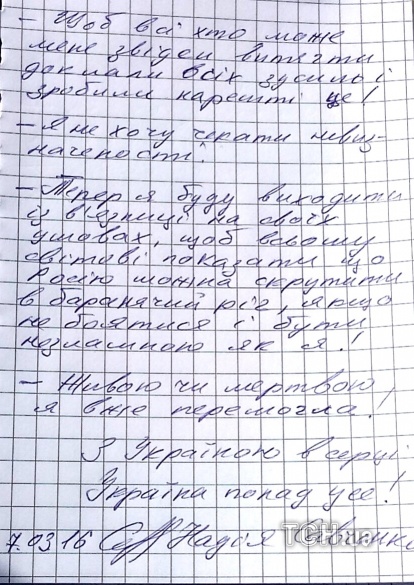 – Щоб всі хто може
мене звідси витягти
доклали всіх зусиль і
зробили нарешті це!
– Я не хочу чекати невиз-
наченості!
– Тепер я буду виходити
із в'язниці на своїх
умовах, щоб всьому
світові показати що
Росію можна скрутити
в баранячий ріг, якщо
не боятися і бути
незламною як я!
– Живою чи мертвою
я вже перемогла!
З Україною в серці
Україна понад усе!
7.03.16 Надія Савченко
ТСН.ua